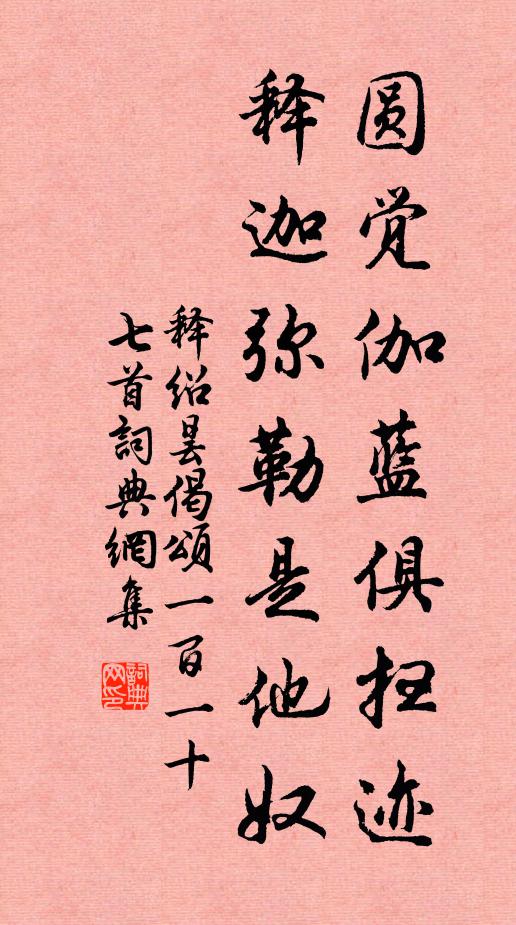 圆觉伽蓝俱扫迹
释迦弥勒是他奴
释绍昙偈颂一百一十
七首詞典網集
詞典网印